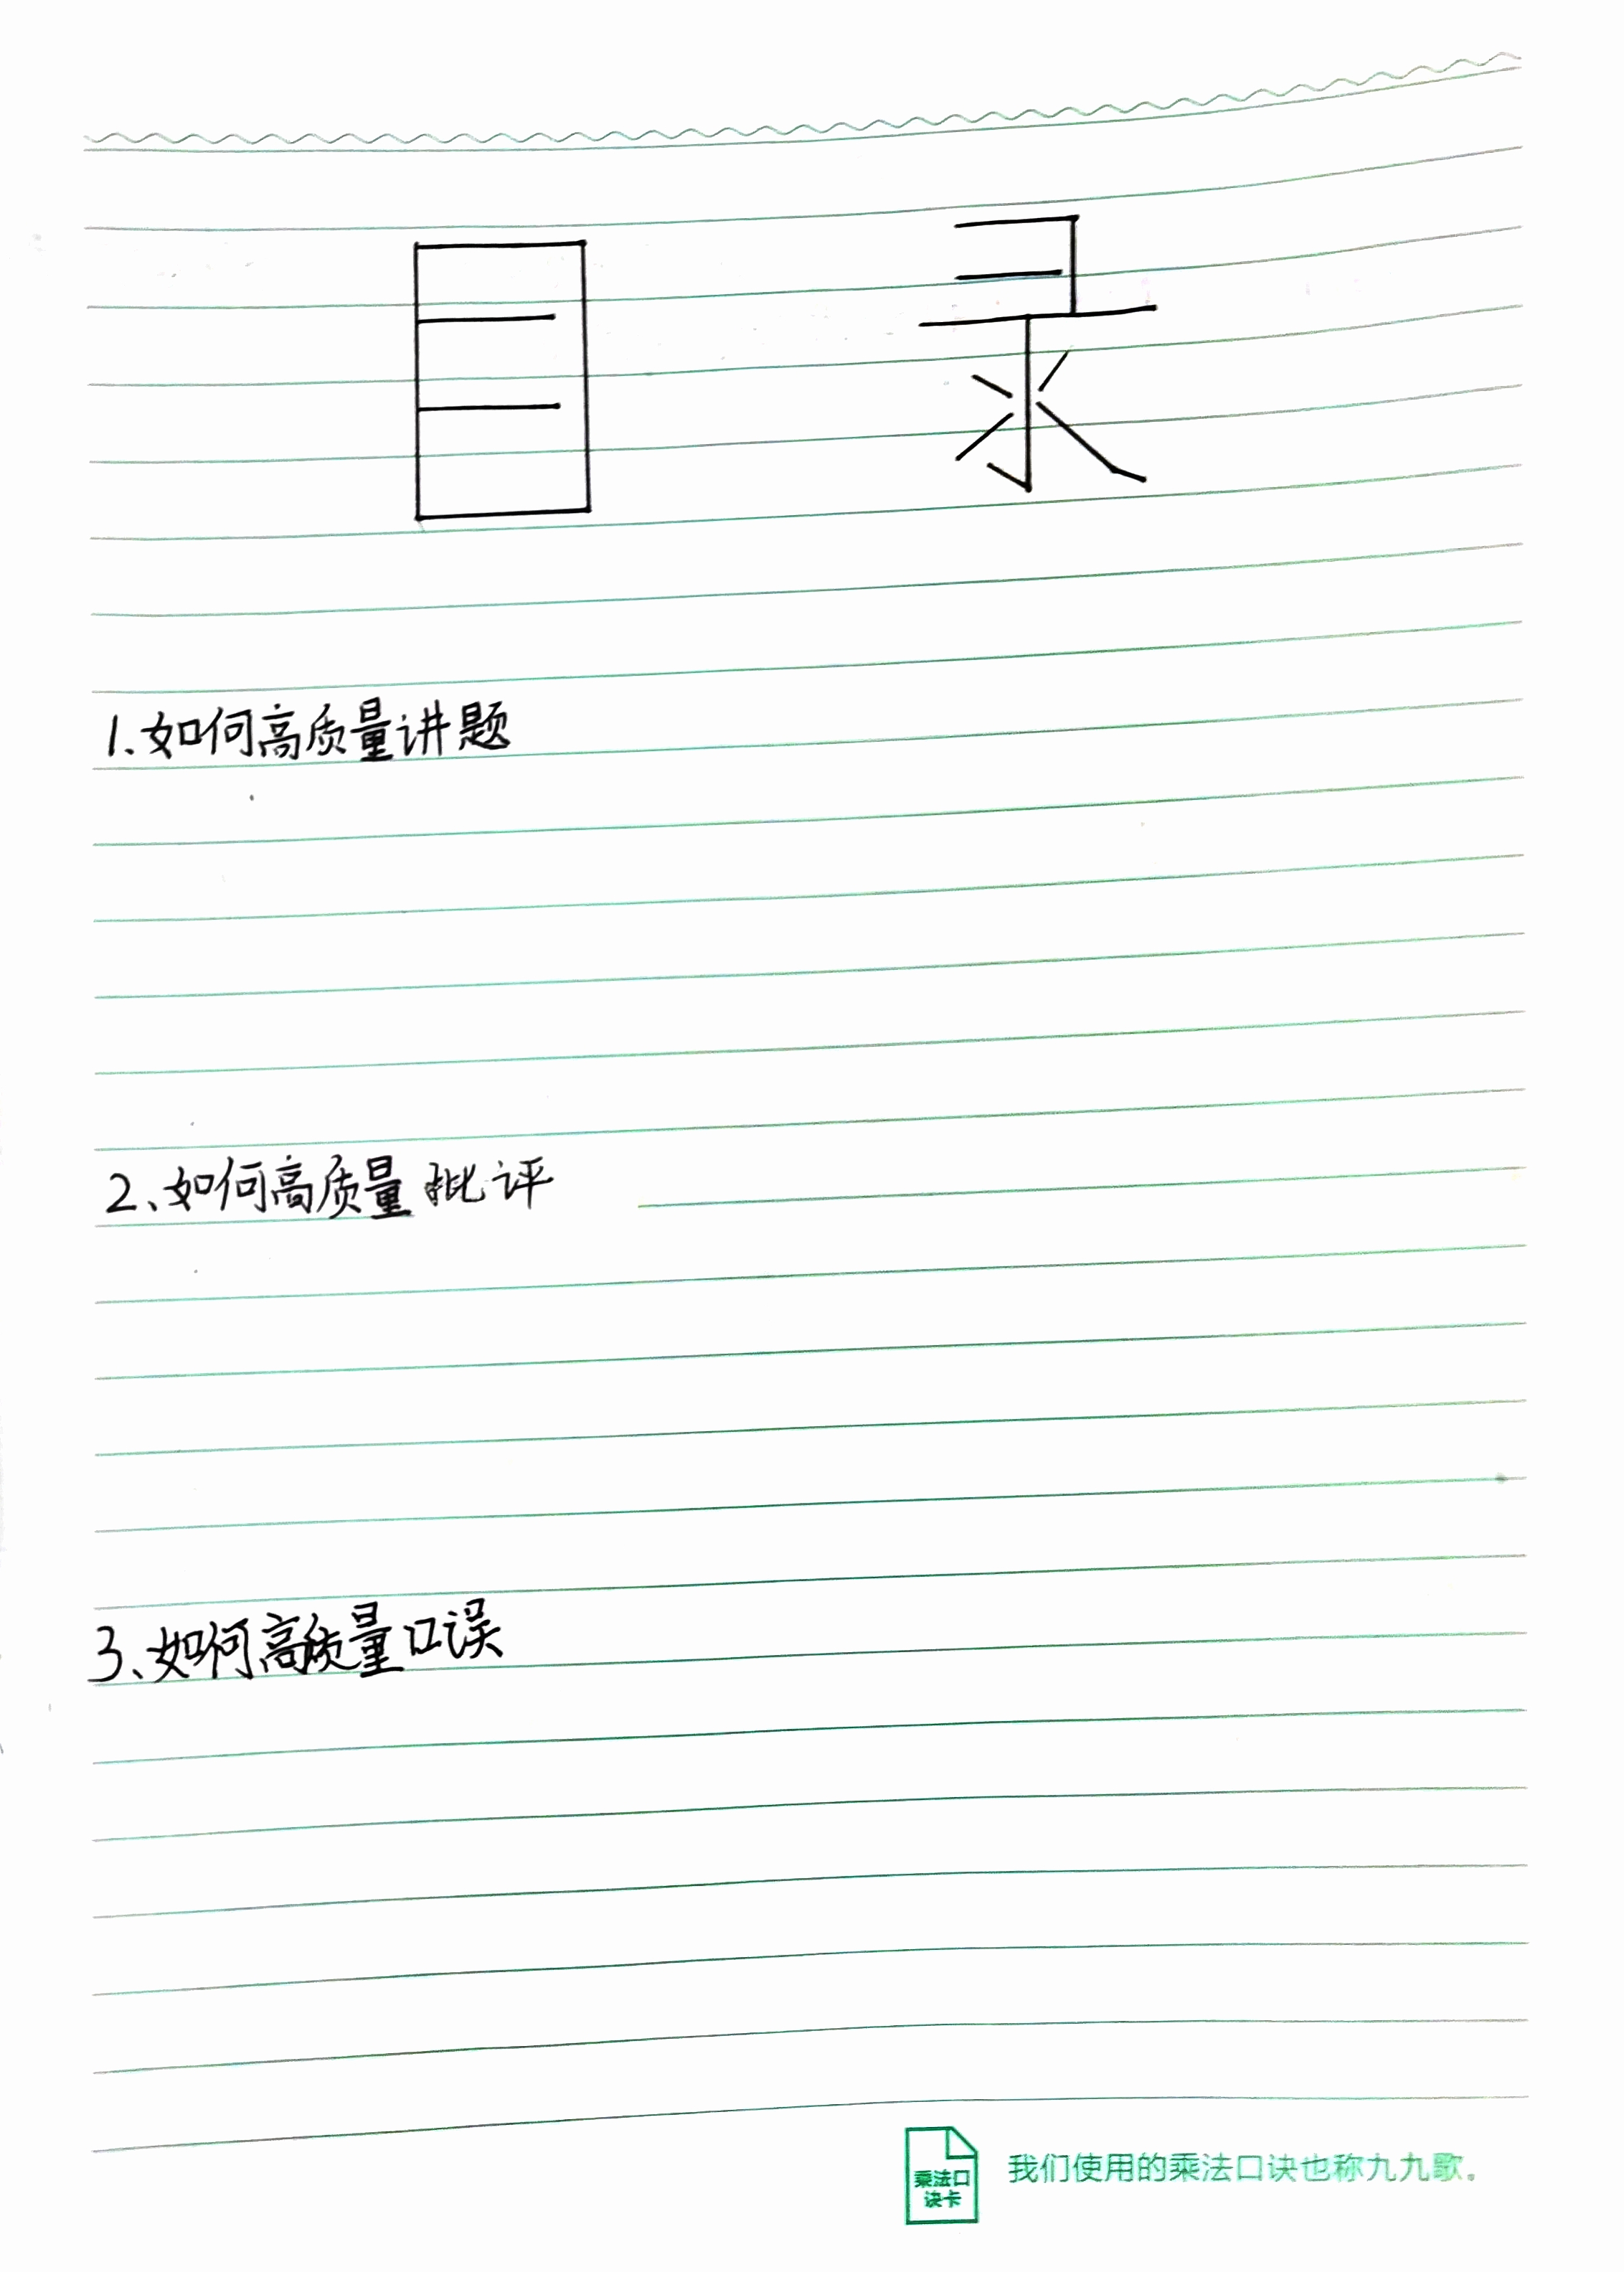 目录
1、如何高质量讲题
2、如何高质量批评
3、如何高质量口误
乘法口
诀卡
我们使用的乘法口诀也称九九歌。